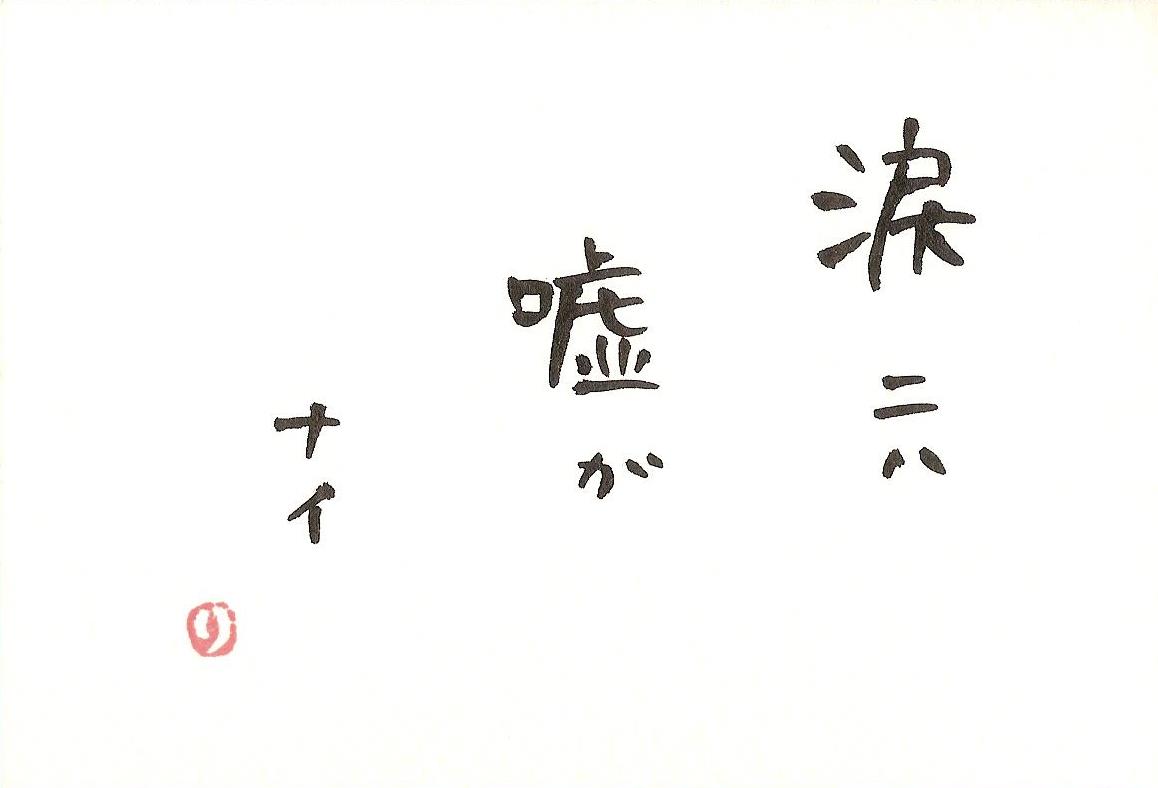 涙ニハ
嘘が
ナイ
の